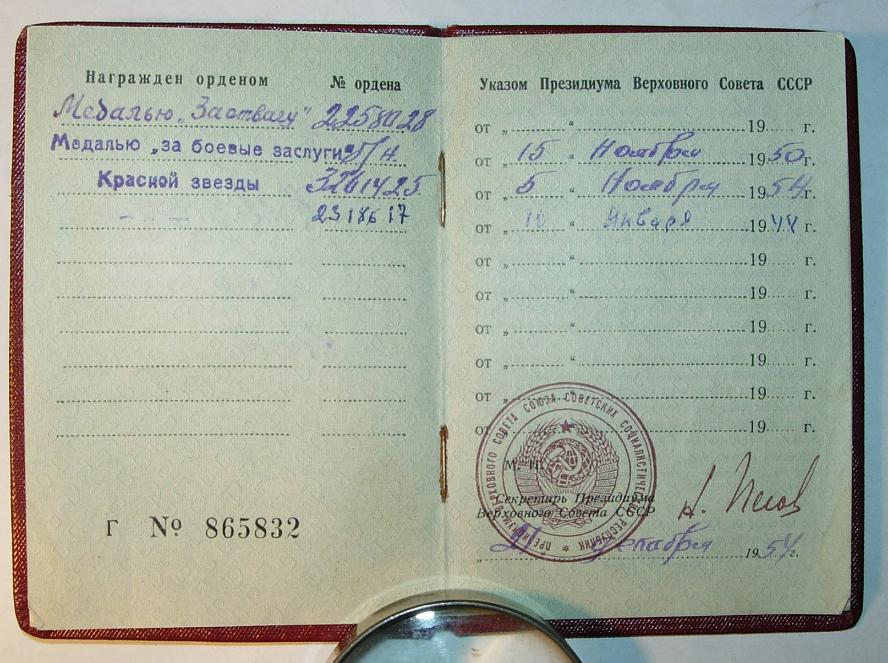 Награжден орденом № ордена
Медалью „За отвагу" 2258028
Медалью „за боевые заслуги" Б/н
Красной звезды 3261425
— „ — 2318617
Г № 865832
Указом Президиума Верховного Совета СССР
от „ “ 19 г.
от „ 15 “ Ноября 1950 г.
от „ 5 “ Ноября 1954 г.
от „ 10 “ Января 1944 г.
от „ “ 19 г.
от „ “ 19 г.
от „ “ 19 г.
от „ “ 19 г.
от „ “ 19 г.
от „ “ 19 г.
ПРЕЗИДИУМ ВЕРХОВНОГО СОВЕТА СОЮЗА СОВЕТСКИХ СОЦИАЛИСТИЧЕСКИХ РЕСПУБЛИК
М. П.
Секретарь Президиума
Верховного Совета СССР
Н. Пегов
„ “ Декабря 1954 г.